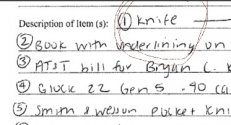 Description of Item (s): ① Knife
② Book with underlining on
③ AT&T bill for Bryan C.
④ Glock 22 Gen 5 .40 ca
⑤ Smith & Wesson pocket kni